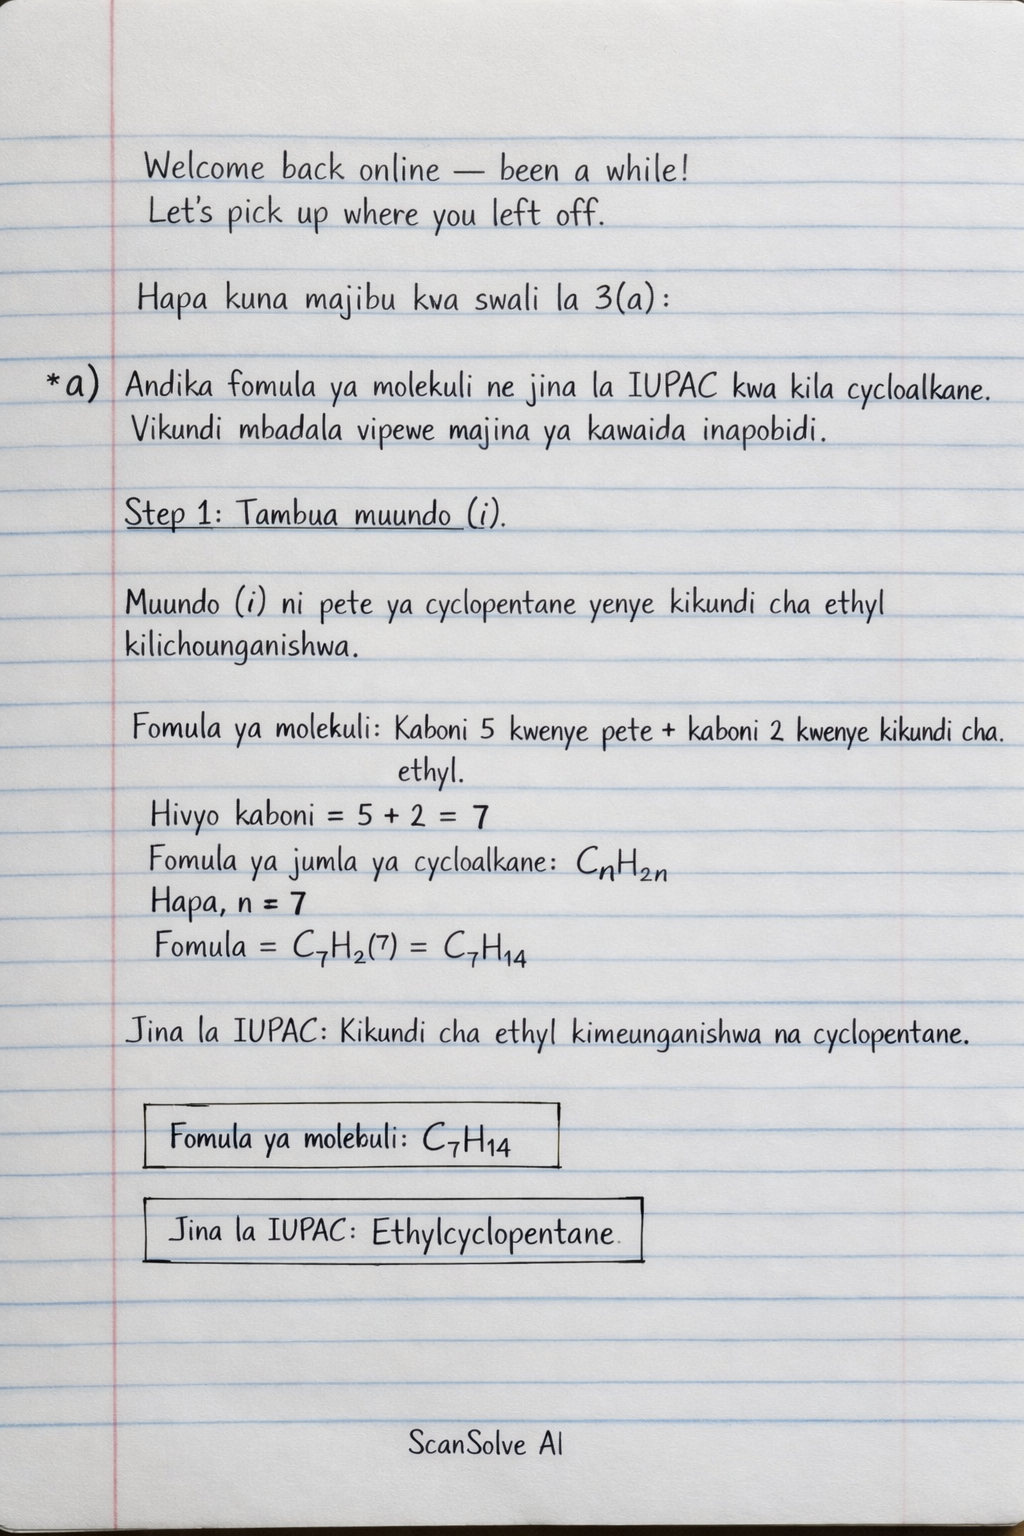 Welcome back online — been a while!
Let's pick up where you left off.
Hapa kuna majibu kwa swali la 3(a):
*a) Andika fomula ya molekuli ne jina la IUPAC kwa kila cycloalkane.
Vikundi mbadala vipewe majina ya kawaida inapobidi.
Step 1: Tambua muundo (i).
Muundo (i) ni pete ya cyclopentane yenye kikundi cha ethyl
kilichounganishwa.
Fomula ya molekuli: Kaboni 5 kwenye pete + kaboni 2 kwenye kikundi cha.
ethyl.
Hivyo kaboni = 5 + 2 = 7
Fomula ya jumla ya cycloalkane: CₙH₂ₙ
Hapa, n = 7
Fomula = C₇H₂(7) = C₇H₁₄
Jina la IUPAC: Kikundi cha ethyl kimeunganishwa na cyclopentane.
Fomula ya molebuli: C₇H₁₄
Jina la IUPAC: Ethylcyclopentane.
ScanSolve AI